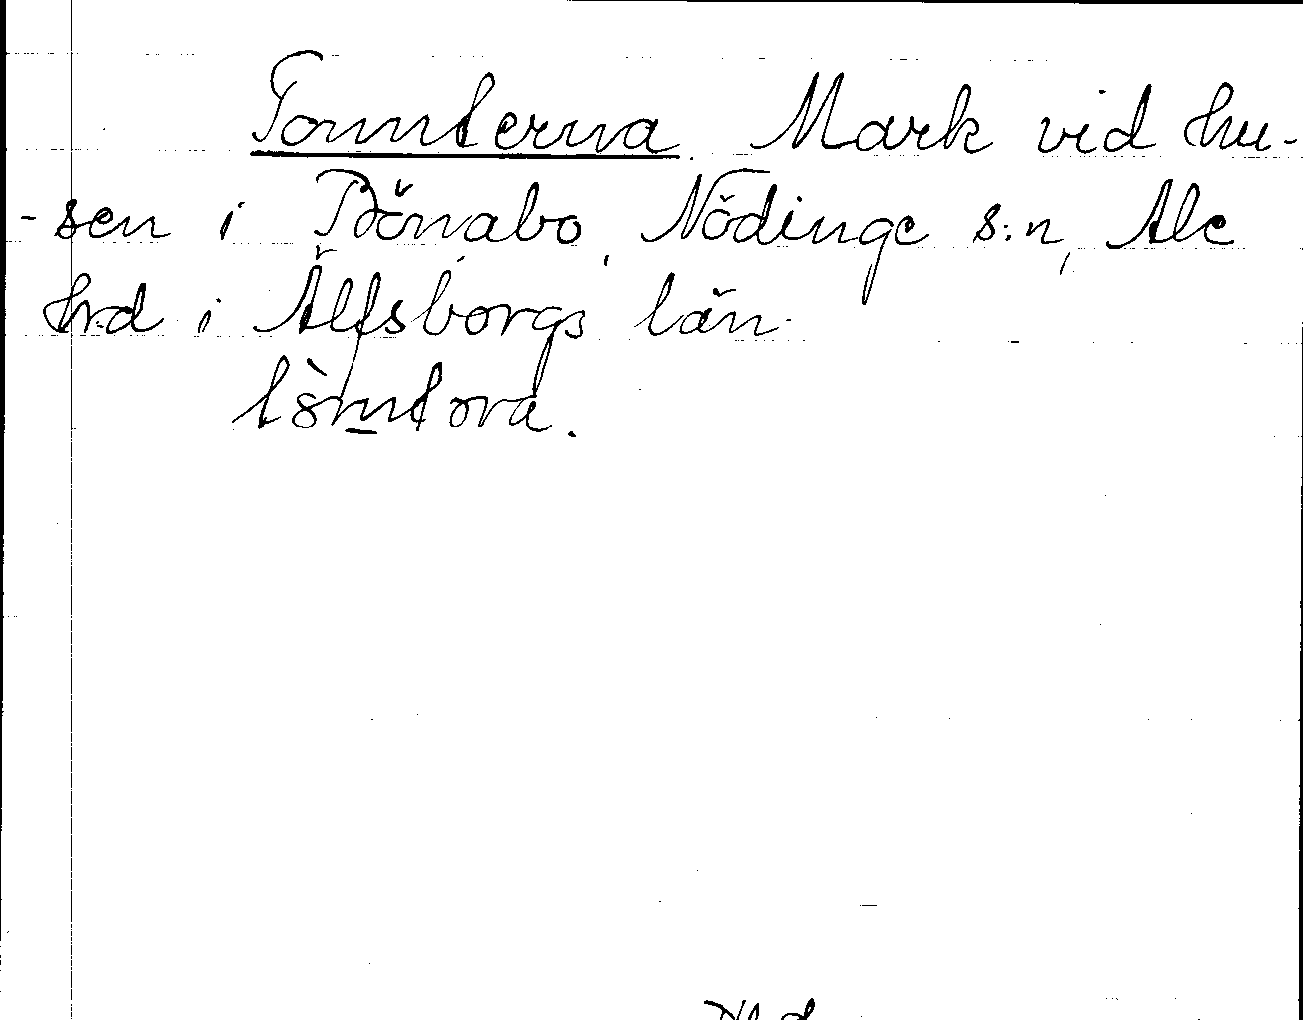 Tomterna. Mark vid hu-
-sen i Bönabo, Nödinge s:n, Ale
hrd i Älfsborgs län.
tòmtora.